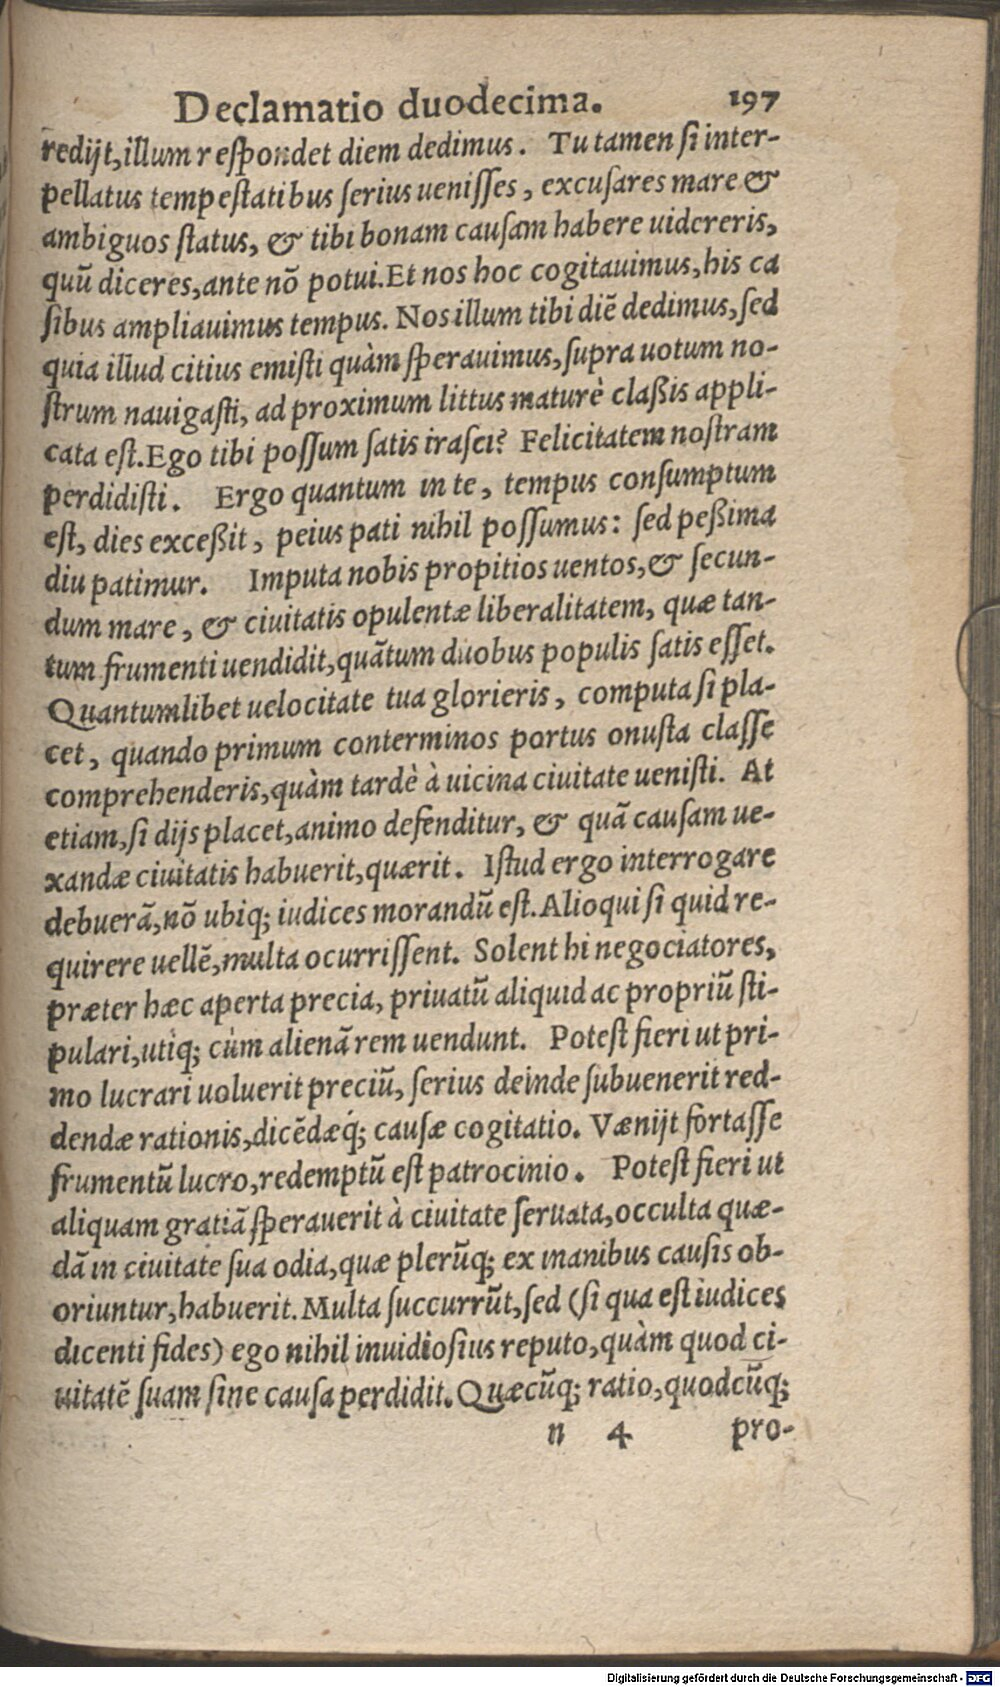 Declamatio duodecima. 197
redijt,illum reſpondet diem dedimus. Tu tamen ſi inter-
pellatus tempeſtatibus ſerius ueniſſes, excuſares mare &
ambiguos ſtatus, & tibi bonam cauſam habere uidereris,
quũ diceres,ante nõ potui.Et nos hoc cogitauimus,his ca
ſibus ampliauimus tempus. Nos illum tibi diẽ dedimus,ſed
quia illud citius emiſti quàm ſperauimus,ſupra uotum no-
ſtrum nauigaſti, ad proximum littus maturè claßis appli-
cata eſt.Ego tibi poſſum ſatis iraſci? Felicitatem noſtram
perdidiſti. Ergo quantum in te, tempus conſumptum
eſt, dies exceßit, peius pati nihil poſſumus: ſed peßima
diu patimur. Imputa nobis propitios uentos,& ſecun-
dum mare, & ciuitatis opulentæ liberalitatem, quæ tan-
tum frumenti uendidit,quãtum duobus populis ſatis eſſet.
Quantumlibet uelocitate tua glorieris, computa ſi pla-
cet, quando primum conterminos portus onuſta claſſe
comprehenderis,quàm tardè à uicina ciuitate ueniſti. At
etiam,ſi dijs placet,animo defenditur, & quã cauſam ue-
xandæ ciuitatis habuerit,quærit. Iſtud ergo interrogare
debuerã,nõ ubiq; iudices morandũ eſt.Alioqui ſi quid re-
quirere uellẽ,multa ocurriſſent. Solent hi negociatores,
præter hæc aperta precia, priuatũ aliquid ac propriũ ſti-
pulari,utiq; cùm alienã rem uendunt. Poteſt fieri ut pri-
mo lucrari uoluerit preciũ, ſerius deinde ſubuenerit red-
dendæ rationis,dicẽdæq́; cauſæ cogitatio. Vænijt fortaſſe
frumentũ lucro,redemptũ eſt patrocinio. Poteſt fieri ut
aliquam gratiã ſperauerit à ciuitate ſeruata,occulta quæ-
dã in ciuitate ſua odia,quæ plerũq; ex inanibus cauſis ob-
oriuntur,habuerit.Multa ſuccurrũt,ſed (ſi qua eſt iudices
dicenti fides) ego nihil inuidioſius reputo,quàm quod ci-
uitatẽ ſuam ſine cauſa perdidit.Quæcũq; ratio,quodcũq;
n 4 pro-
Digitalisierung gefördert durch die Deutsche Forschungsgemeinschaft - DFG